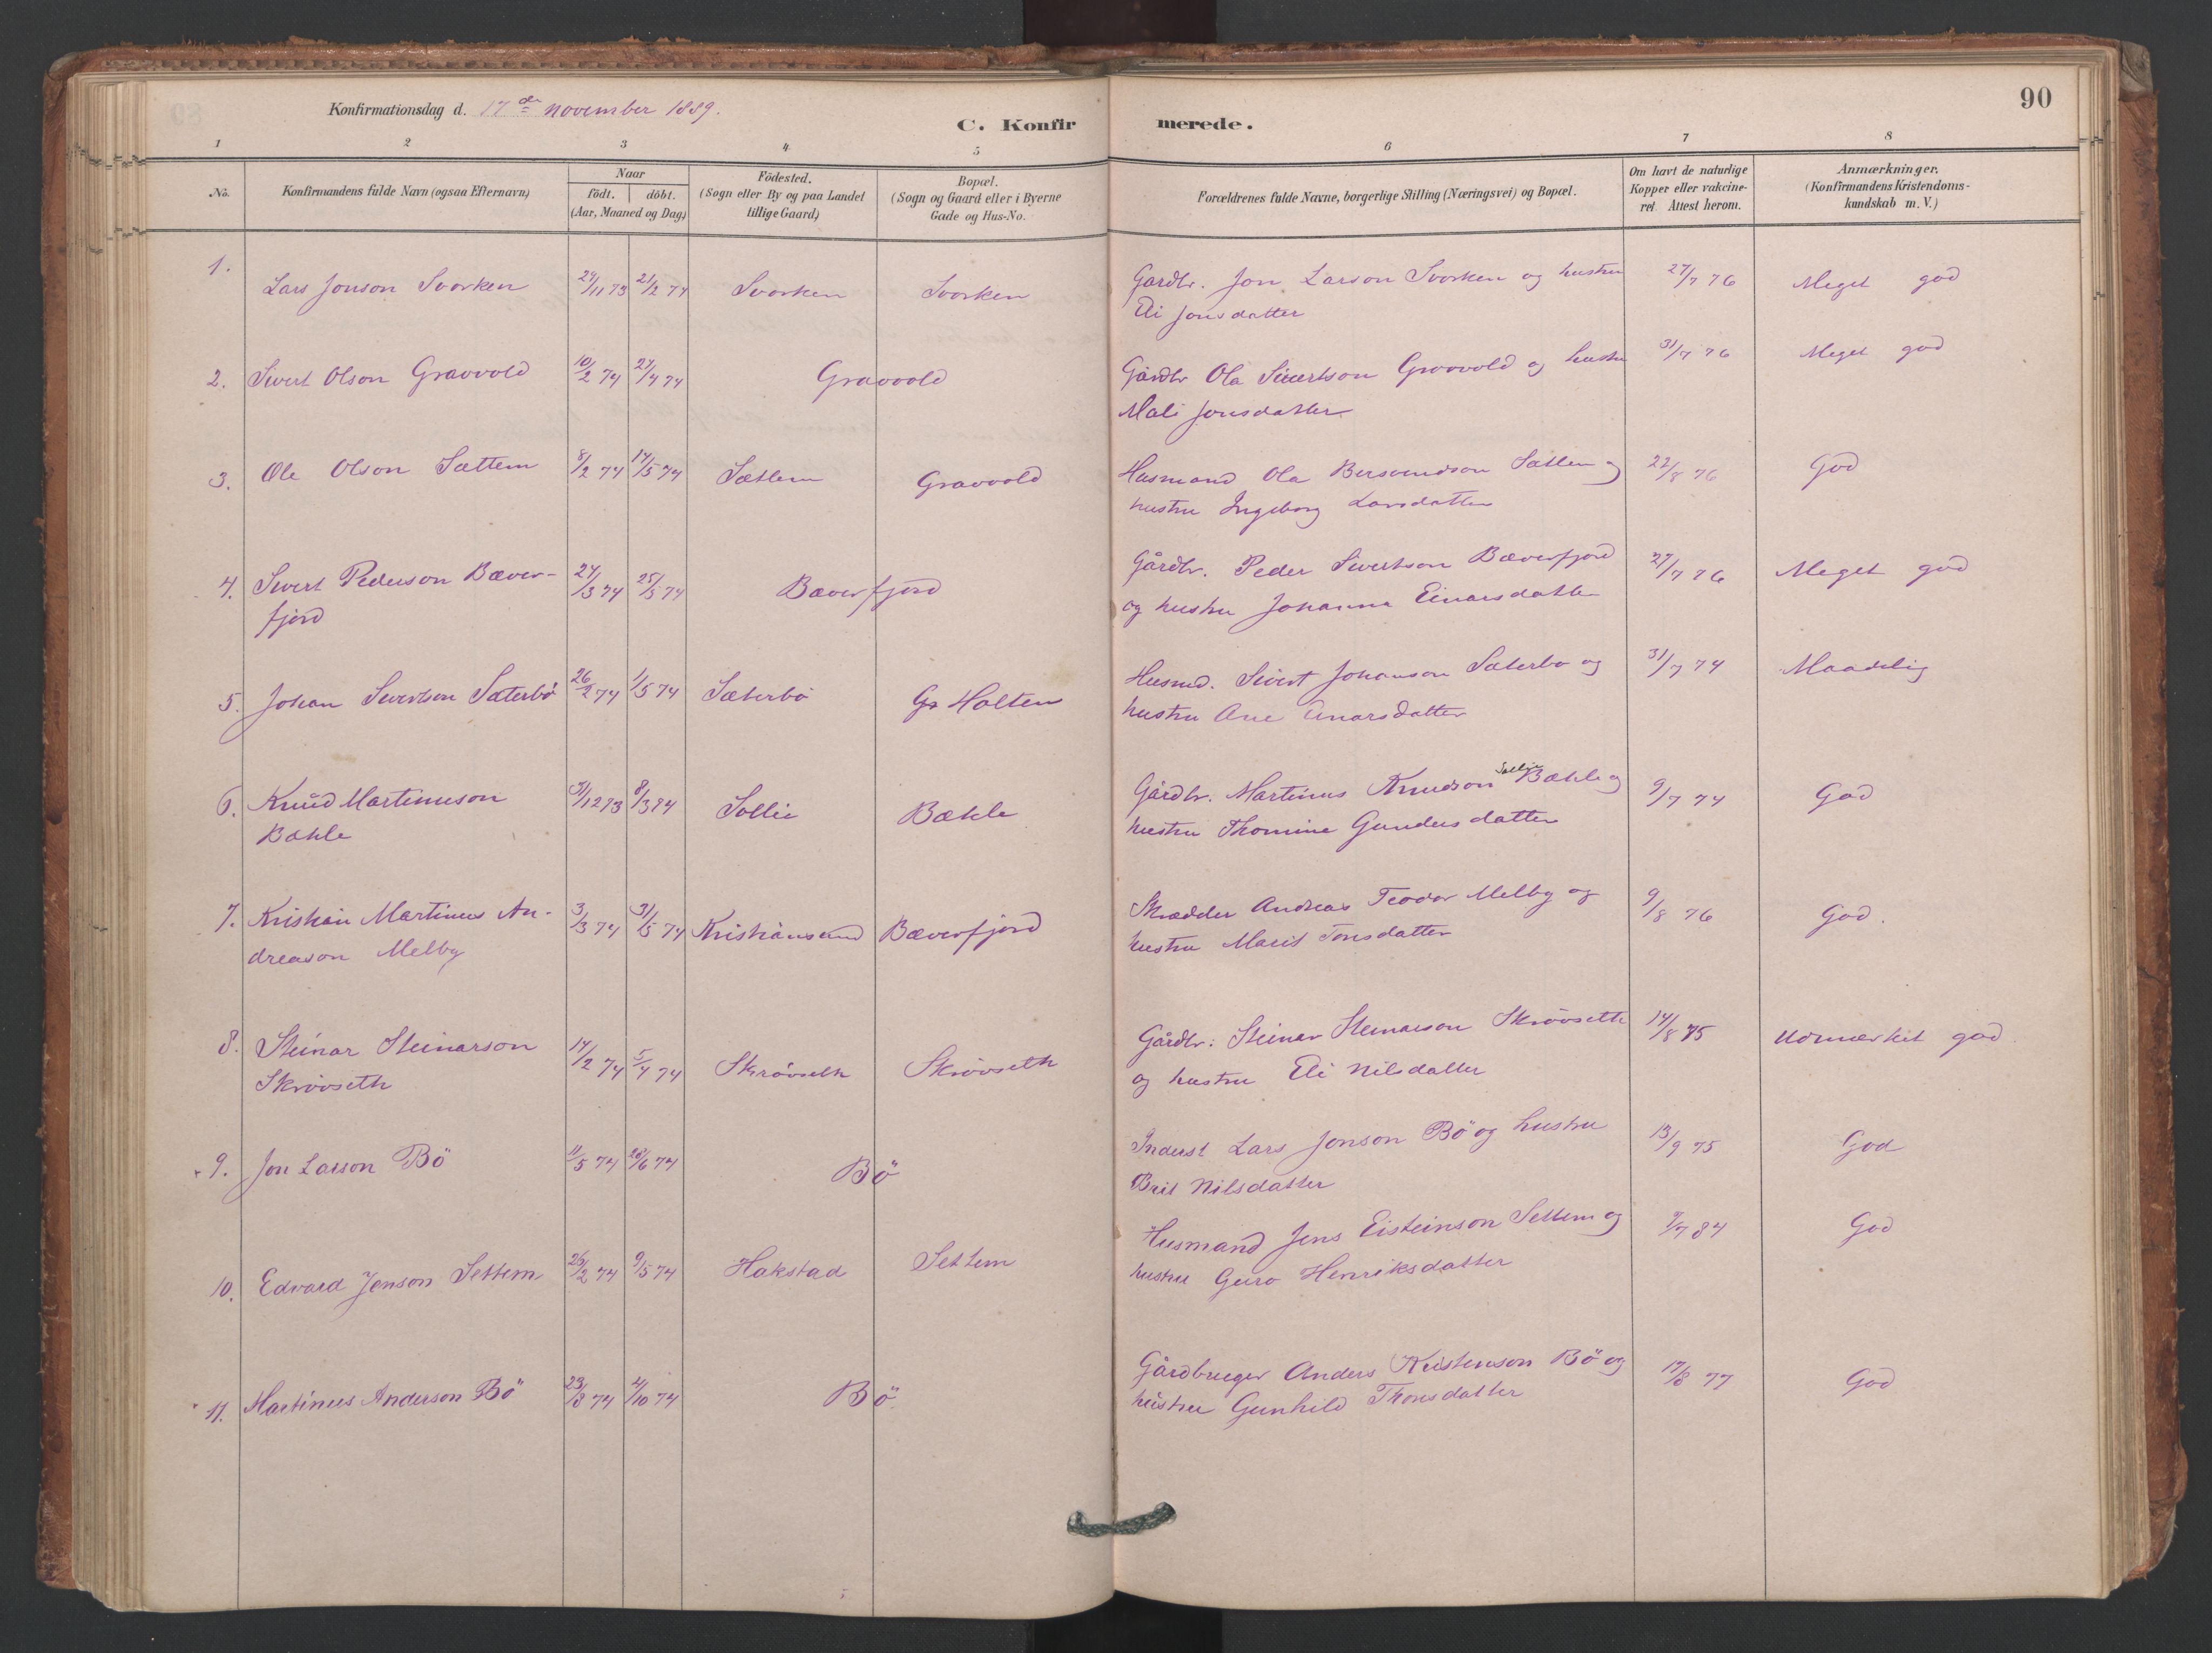 90
Konfirmationsdag d. 17de November 1889.
C. Konfirmerede.
1 2 3 4 5 6 7 8
No. Konfirmandens fulde Navn (ogsaa Efternavn) Naar födt. döbt. (Aar, Maaned og Dag) Födested. (Sogn eller By og paa Landet tillige Gaard) Bopæl. (Sogn og Gaard eller i Byerne Gade og Hus-No. Forældrenes fulde Navne, borgerlige Stilling (Næringsvei) og Bopæl. Om havt de naturlige Kopper eller vakcineret. Attest herom. Anmærkninger. (Konfirmandens Kristendomskundskab m. V.)
1. Lars Jonson Svorken 24/11 73 21/2 74 Svorken Svorken Gardbr. Jon Larson Svorken og hustru 27/7 76 Meget god
Eli Jonsdatter
2. Sivert Olson Gravvold 10/2 74 27/4 74 Gravvold Gårdbr Ola Sivertson Gravvold og hustru 31/7 76 Meget god
Mali Jonsdatter
3. Ole Olson Sættem 8/2 74 17/5 74 Sættem Gravvold Husmand Ola Bersvendson Sættem og 22/8 76 God
hustru Ingeborg Larsdatter
4. Sivert Pederson Bæver- 24/3 74 25/5 74 Bæverfjord Gårdbr. Peder Sivertson Bæverfjord 27/7 76 Meget god
fjord og hustru Johanna Einarsdatter
5. Johan Sivertson Sæterbö 26/2 74 1/5 74 Sæterbö Holten Husmd. Sivert Johanson Sæterbö og 31/7 74 Maadelig
hustru Ane Einarsdatter
6. Knud Martinuson 31/12 73 8/3 74 Sollie Bæhle Gårdbr. Martinus Knudson Sollie Bæhle og 9/7 74 God
Bæhle hustru Thomine Gundersdatter
7. Kristian Martinus An- 3/3 74 31/5 74 Kristiansund Bæverfjord Skrædder Andreas Teodor Melby og 9/8 76 God.
dreason Melby hustru Marit Tonsdatter
8. Steinar Steinarson 17/2 74 5/4 74 Skrövseth Skrövseth Gårdbr: Steinar Steinarson Skrövseth 14/8 75 Udmærket god
Skrövseth og hustru Eli Nilsdatter
9. Jon Larson Bö 11/5 74 28/6 74 Bö Inderst Lars Jonson Bö og hustru 13/9 75 God
Brit Nilsdatter
10. Edvard Jenson Settem 26/2 74 9/5 74 Hakstad Settem Husmand Jens Eisteinson Settem og 9/7 84 God
hustru Guro Henriksdatter
11. Martinus Anderson Bö 23/8 74 4/10 74 Bö Gårdbruger Anders Kristenson Bö og 17/8 77 God
hustru Gunhild Thonsdatter